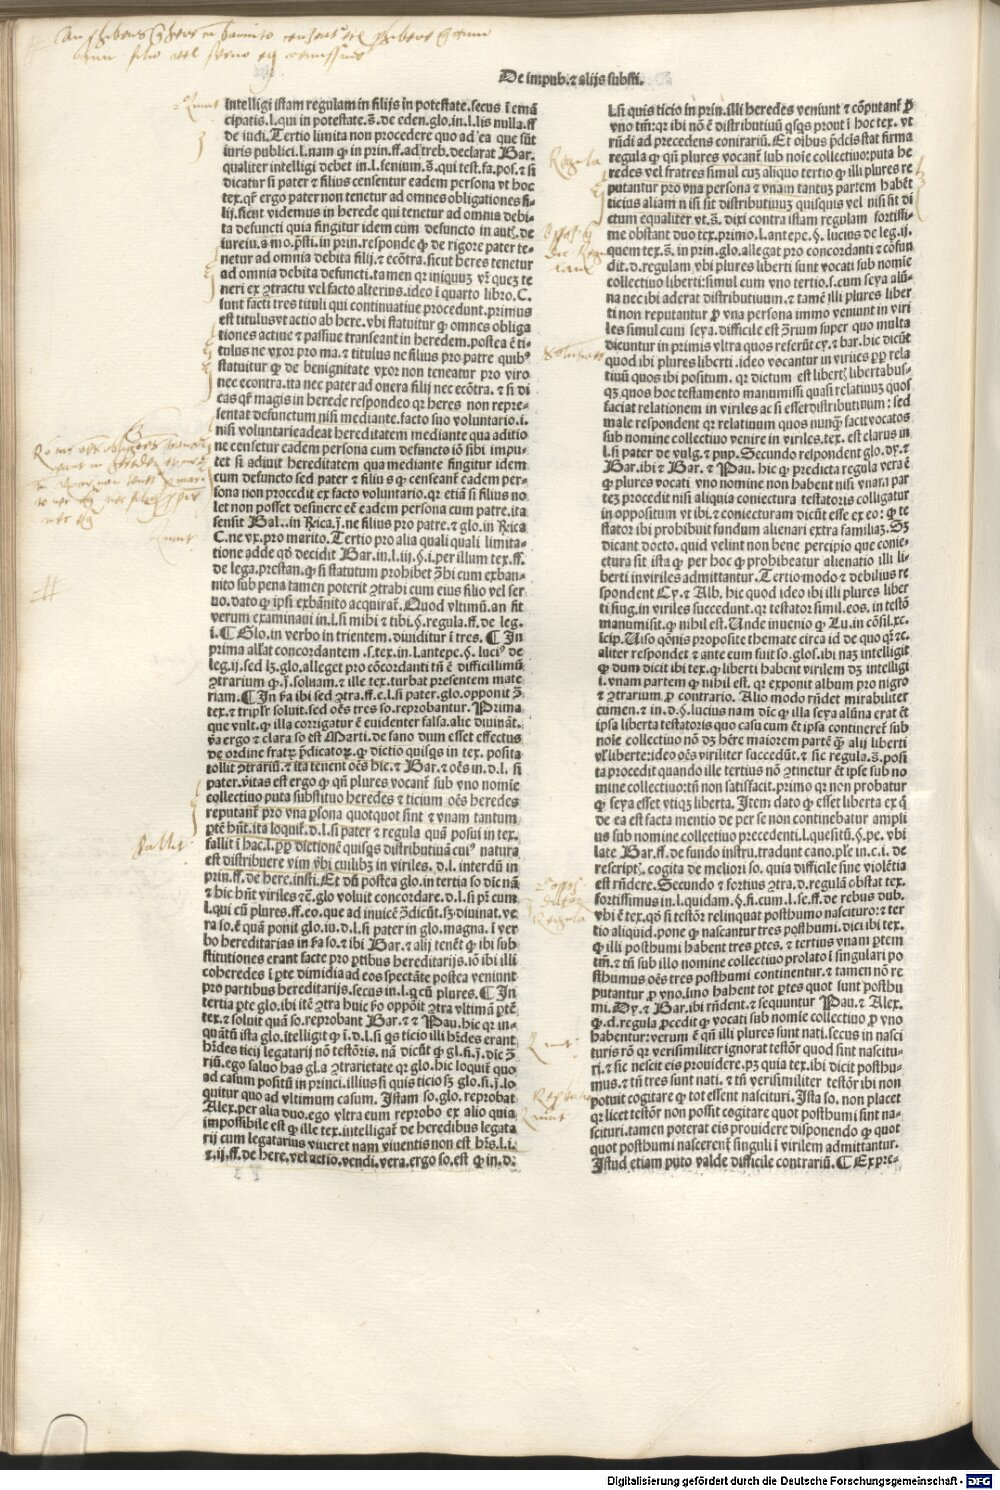 De impub. ⁊ alijs substi.
intelligi istam regulam in filijs in potestate. secus ī emā
cipatis. l. qui in potestate. s̄. de eden. glo. in. l. lis nulla. ff
de iudi. Tertio limita non procedere quo ad ea que sūt
iuris publici. l. nam ꝙ in prin. ff. ad treb. declarat Bar.
qualiter intelligi debet in. l. senium. s̄. qui test. fa. pos. ⁊ si
dicatur si pater ⁊ filius censentur eadem persona vt hoc
tex. qr̄ ergo pater non tenetur ad omnes obligationes fi-
lij. sicut videmus in herede qui tenetur ad omnia debi-
ta defuncti quia fingitur idem cum defuncto in auc̄. de
iureiu. a mo. p̄sti. in prin. responde ꝙ de rigore pater te-
netur ad omnia debita filij. ⁊ ecōtra. sicut heres tenetur
ad omnia debita defuncti. tamen qr iniquuȝ vr̄ queȝ te
neri ex ꝯtractu vel facto alterius. ideo ī quarto libro. C.
sunt facti tres tituli qui continuatiue procedunt. primus
est titulus vt actio ab here. vbi statuitur ꝙ omnes obliga
tiones actiue ⁊ passiue transeant in heredem. postea ē ti-
tulus ne vxor pro ma. ⁊ titulus ne filius pro patre quibꝰ
statuitur ꝙ de benignitate vxor non teneatur pro viro
nec econtra. ita nec pater ad onera filij nec ecōtra. ⁊ si di
cas qr̄ magis in herede respondeo qr heres non repre-
sentat defunctum nisi mediante. facto suo voluntario. i.
nisi voluntarie adeat hereditatem mediante qua aditio
ne censetur eadem persona cum defuncto iō sibi impu-
tet si adiuit hereditatem qua mediante fingitur idem
cum defuncto sed pater ⁊ filius ꝙ censeant̄ eadem per-
sona non procedit ex facto voluntario. qr etiā si filius no
let non posset desinere eē eadem persona cum patre. ita
sensit Bal. in Rica. j̄. ne filius pro patre. ⁊ glo. in Rica
C. ne vx. pro marito. Tertio pro alia quali quali limita-
tione adde qd̄ decidit Bar. in. l. iij. §. i. per illum tex. ff.
de lega. prestan. ꝙ si statutum prohibet ꝯhi cum exban-
nito sub pena tamen poterit ꝯtrahi cum eius filio vel ser
uo. dato ꝙ ipsi exbānito acquirat̄. Quod vltimū. an sit
verum examinaui in. l. si mihi ⁊ tibi. §. regula. ff. de leg.
i. ¶ Glo. in verbo in trientem. diuiditur ī tres. ¶ In
prima allat concordantem. s. tex. in. l. antepe. §. luciꝰ de
leg. ij. sed lȝ. glo. alleget pro cōcordanti tn̄ ē difficillimū
ꝯtrarium ꝙ. j̄. soluam. ⁊ ille tex. turbat presentem mate
riam. ¶ In v̄a ibi sed ꝯtra. ff. e. l. si pater. glo. opponit ꝯ̄
tex. ⁊ triplr̄ soluit. sed oēs tres so. reprobantur. Prima
que vult. ꝙ illa corrigatur ē euidenter falsa. alie diuināt.
v̄a ergo ⁊ clara so est Marti. de fano dum esset effectus
de ordine fratꝝ p̄dicatoꝝ. ꝙ dictio quisqs in tex. posita
tollit ꝯtrariū. ⁊ ita tenent oēs hic. ⁊ Bar. ⁊ oēs in. d. l. si
pater. v̄itas est ergo ꝙ qn̄ plures vocant̄ sub vno nomie
collectiuo puta substituo heredes ⁊ ticium oēs heredes
reputant̄ pro vna p̄sona quotquot sint ⁊ vnam tantum
p̄tē hn̄t. ita loquit̄. d. l. si pater ⁊ regula quā posui in tex.
fallit ī hac. l. ꝓp̄ dictionē quisqs distributiuā cuiꝰ natura
est distribuere vim v̄bi cuilibȝ in viriles. d. l. interdū in
prin. ff. de here. insti. Et dū postea glo. in tertia so dic nā
⁊ hic hn̄t viriles ⁊c̄. glo voluit concordare. d. l. si pr̄ cum
l. qui cū plures. ff. eo. que ad inuicē ꝯdicūt. sȝ. diuinat. ve
ra so. ē quā ponit glo. iu. d. l. si pater in glo. magna. ī ver
bo hereditarias in v̄a so. ⁊ ibi Bar. ⁊ alij tenēt ꝙ ibi sub
stitutiones erant facte pro ꝑtibus hereditarijs. iō ibi illi
coheredes ī p̄te dimidia ad eos spectāte postea veniunt
pro partibus hereditarijs. secus in. l. q̄ cū plures. ¶ In
tertia p̄te glo. ibi itē ꝯtra huic v̄o oppōit ꝯtra vltimā p̄tē
tex. ⁊ soluit quā so. reprobant Bar. ⁊ ⁊ Pau. hic qr in-
quātū ista glo. ītelligit ꝙ ī. d. l. si qs ticio illi hr̄des erant
hr̄des ticij legatarij nō testōris. nā dicūt ꝙ gl. n̄. j̄. dic ꝯ̄
riū. ego saluo has gl. a ꝯtrarietate qr glo. hic loquit̄ quo
ad casum positū in princi. illius si quis ticio sȝ glo. si. j̄. lo
quitur quo ad vltimum casum. Istam so. glo. reprobat
Alex. per alia duo. ego vltra eum reprobo ex alio quia
impossibile est ꝙ ille tex. intelligat̄ de heredibus legata
rij cum legatarius viueret nam viuentis non est hr̄s. l. i.
⁊. ij. ff. de here. vel actio. vendi. vera. ergo so. est ꝙ in. d.
l. si quis ticio in prin. illi heredes veniunt ⁊ cōputant̄ ꝓ
vno tm̄: qr ibi nō ē distributiuū qsqs prout ī hoc tex. vt
rn̄di ad precedens conirariū. Et oībus p̄dc̄is stat firma
regula ꝙ qn̄ plures vocant̄ sub noīe collectiuo: puta he
redes vel fratres simul cuȝ aliquo tertio ꝙ illi plures re
putantur pro vna persona ⁊ vnam tantuȝ partem habēt
ticius aliam nisi sit distributiuuȝ quisquis vel nisi sit di
ctum equaliter vt. s̄. dixi contra istam regulam fortissi-
me obstant duo tex. primo. l. antepe. §. lucius de leg. ij.
quem tex. s̄. in prin. glo. allegat pro concordanti ⁊ cōfun
dit. d. regulam. vbi plures liberti sunt vocati sub nomie
collectiuo liberti: simul cum vno tertio. s. cum seya alū-
na nec ibi aderat distributiuum. ⁊ tamē illi plures liber
ti non reputantur ꝓ vna persona immo veniunt in viri
les simul cum seya. difficile est ꝯ̄rium super quo multa
dicuntur in primis vltra quos referūt cy. ⁊ bar. hic dicūt
quod ibi plures liberti. ideo vocantur in viriles ꝓp̄ rela
tiuū quos ibi positum. qr dictum est libert̄ libertabus-
qȝ quos hoc testamento manumissi quasi relatiuuȝ quos
faciat relationem in viriles ac si esset distributiuum: sed
male respondent qr relatiuum quos nunq̄ facit vocatos
sub nomine collectiuo venire in viriles. tex. est clarus in
l. si pater de vulg. ⁊ pup. Secundo respondent glo. dy. ⁊
Bar. ibi ⁊ Bar. ⁊ Pau. hic ꝙ predicta regula vera ē
ꝙ plures vocati vno nomine non habent nisi vnam par
teȝ procedit nisi aliqua coniectura testatoris colligatur
in oppositum vt ibi. ⁊ coniecturam dicūt esse ex eo: ꝙ te
stator ibi prohibuit fundum alienari extra familiaȝ. Sȝ
dicant docto. quid velint non bene percipio que conie-
ctura sit ista ꝙ per hoc ꝙ prohibeatur alienatio illi li-
berti in viriles admittantur. Tertio modo ⁊ debilius re
spondent Cy. ⁊ Alb. hic quod ideo ibi illi plures liber
ti sing. in viriles succedunt. qr testator simil. eos. in testō
manumisit. ꝙ nihil est. Unde inuenio ꝙ Lu. in cōsil. xc.
icip. Uiso qōnis proposite themate circa id de quo qr̄ ⁊c.
aliter respondet ⁊ ante eum fuit so. glos. ibi naȝ intelligit
ꝙ dum dicit ibi tex. ꝙ liberti habent virilem dȝ intelligi
i. vnam partem ꝙ nihil est. qr exponit album pro nigro
⁊ ꝯtrarium ꝓ contrario. Alio modo rn̄det mirabiliter
cumen. ⁊ in. d. §. lucius nam dic̄ ꝙ illa seya alūna erat ēt
ipsa liberta testatoris quo casu cum ēt ipsa contineret̄ sub
noīe collectiuo nō dȝ hr̄e maiorem partē q̄ alij liberti
vl̄ liberte: ideo oēs viriliter succedūt. ⁊ sic regula. s̄. posi
ta procedit quando ille tertius nō ꝯtinetur ēt ipse sub no
mine collectiuo: tn̄ non satisfacit. primo qr non probatur
ꝙ seya esset vtiqȝ liberta. Item dato ꝙ esset liberta ex q̄
de ea est facta mentio de per se non continebatur ampli
us sub nomine collectiuo precedenti. l. quesitū. §. pe. vbi
late Bar. ff. de fundo instru. tradunt cano. ple in. c. i. de
rescript̄. cogita de meliori so. quia difficile sine violētia
est rn̄dere. Secundo ⁊ fortius ꝯtra. d. regulā obstat tex.
fortissimus in. l. quidam. §. fi. cum. l. se. ff. de rebus dub.
vbi ē tex. qd̄ si testōr relinquat posthumo nascituro: ⁊ ter
tio aliquid. pone ꝙ nascantur tres posthumi. dici ibi tex.
ꝙ illi posthumi habent tres p̄tes. ⁊ tertius vnam p̄tem
tm̄. ⁊ tn̄ sub illo nomine collectiuo prolato ī singulari po
sthumus oēs tres posthumi continentur. ⁊ tamen nō re
putantur ꝓ vno. imo habent tot p̄tes quot sunt posthu
mi. Dy. ⁊ Bar. ibi rn̄dent. ⁊ sequuntur Pau. ⁊ Alex.
ꝙ. d. regula ꝓcedit ꝙ vocati sub nomie collectiuo ꝓ vno
habentur: verum ē qn̄ illi plures sunt nati. secus in nasci
turis rō qr verisimiliter ignorat testōr quod sint nascitu-
ri. ⁊ sic nescit eis prouidere. pȝ quia tex. ibi dicit posthu-
mus. ⁊ tn̄ tres sunt nati. ⁊ tn̄ verisimiliter testōr ibi non
potuit cogitare ꝙ tot essent nascituri. Ista so. non placet
qr licet testōr non possit cogitare quot posthumi sint na-
scituri. tamen poterat eis prouidere disponendo ꝙ quot
quot posthumi nascerent̄ singuli ī virilem admittantur.
Istud etiam puto valde difficile contrariū. ¶ Ex pre-
Fallit
Regula
Digitalisierung gefördert durch die Deutsche Forschungsgemeinschaft - DFG